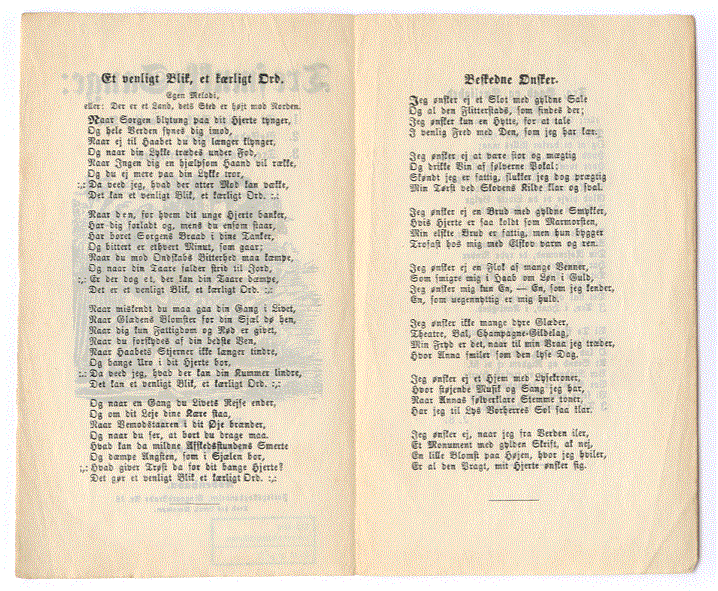 Et venligt Blik, et kærligt Ord.
Egen Melodi,
eller: Der er et Land, dets Sted er højt mod Norden.
Naar Sorgen blytung paa dit Hjerte tynger,
Og hele Verden synes dig imod,
Naar ej til Haabet du dig længer klynger,
Og naar din Lykke trædes under Fod,
Naar Ingen dig en hjælpsom Haand vil række,
Og du ej mere paa din Lykke tror,
:,: Da veed jeg, hvad der atter Mod kan vække,
Det kan et venligt Blik, et kærligt Ord. :,:
Naar den, for hvem dit unge Hjerte banker,
Har dig forladt og, mens du ensom staar,
Har boret Sorgens Braad i dine Tanker,
Og bittert er ethvert Minut, som gaar;
Naar du mod Ondskabs Bitterhed maa kæmpe,
Og naar din Taare falder strid til Jord,
:,: Er der dog et, der kan din Taare dæmpe,
Det er et venligt Blik, et kærligt Ord. :,:
Naar miskendt du maa gaa din Gang i Livet,
Naar Glædens Blomster for din Sjæl dø hen,
Naar dig kun Fattigdom og Nød er givet,
Naar du forskydes af din bedste Ven,
Naar Haabets Stjerner ikke længer tindre,
Og bange Uro i dit Hjerte bor,
:,: Da veed jeg, hvad der kan din Kummer lindre,
Det kan et venligt Blik, et kærligt Ord. :,:
Og naar en Gang du Livets Rejse ender,
Og om dit Leje dine Kære staa,
Naar Vemodstaaren i dit Øje brænder,
Og naar du ser, at bort du drage maa.
Hvad kan da mildne Afskedsstundens Smerte
Og dæmpe Angsten, som i Sjælen bor,
:,: Hvad giver Trøst da for dit bange Hjerte?
Det gør et venligt Blik et kærligt Ord. :,:
Beskedne Ønsker.
Jeg ønsker ej et Slot med gyldne Sale
Og al den Flitterstads, som findes der;
Jeg ønsker kun en Hytte, for at tale
I venlig Fred med Den, som jeg har kær.
Jeg ønsker ej at være stor og mægtig
Og drikke Vin af sølverne Pokal;
Skøndt jeg er fattig, slukker jeg dog prægtig
Min Tørst ved Skovens Kilde klar og sval.
Jeg ønsker ej en Brud med gyldne Smykker,
Hvis Hjerte er saa koldt som Marmorsten,
Min elskte Brud er fattig, men hun bygger
Trofast hos mig med Elskov varm og ren.
Jeg ønsker ej en Flok af mange Venner,
Som smigre mig i Haab om Løn i Guld,
Jeg ønsker mig kun En, — En, som jeg kender,
En, som uegennyttig er mig huld.
Jeg ønsker ikke mange dyre Glæder,
Theatre, Bal, Champagne-Gildelag,
Min Fryd er det, naar til min Vraa jeg træder,
Hvor Anna smiler som den lyse Dag.
Jeg ønsker ej et Hjem med Lysekroner,
Hvor støjende Musik og Sang jeg har,
Naar Annas sølverklare Stemme toner,
Har jeg til Lys Vorherres Sol saa klar.
Jeg ønsker ej, naar jeg fra Verden iler,
Et Monument med gylden Skrift, ak nej,
En lille Blomst paa Højen, hvor jeg hviler,
Er al den Pragt, mit Hjerte ønsker sig.